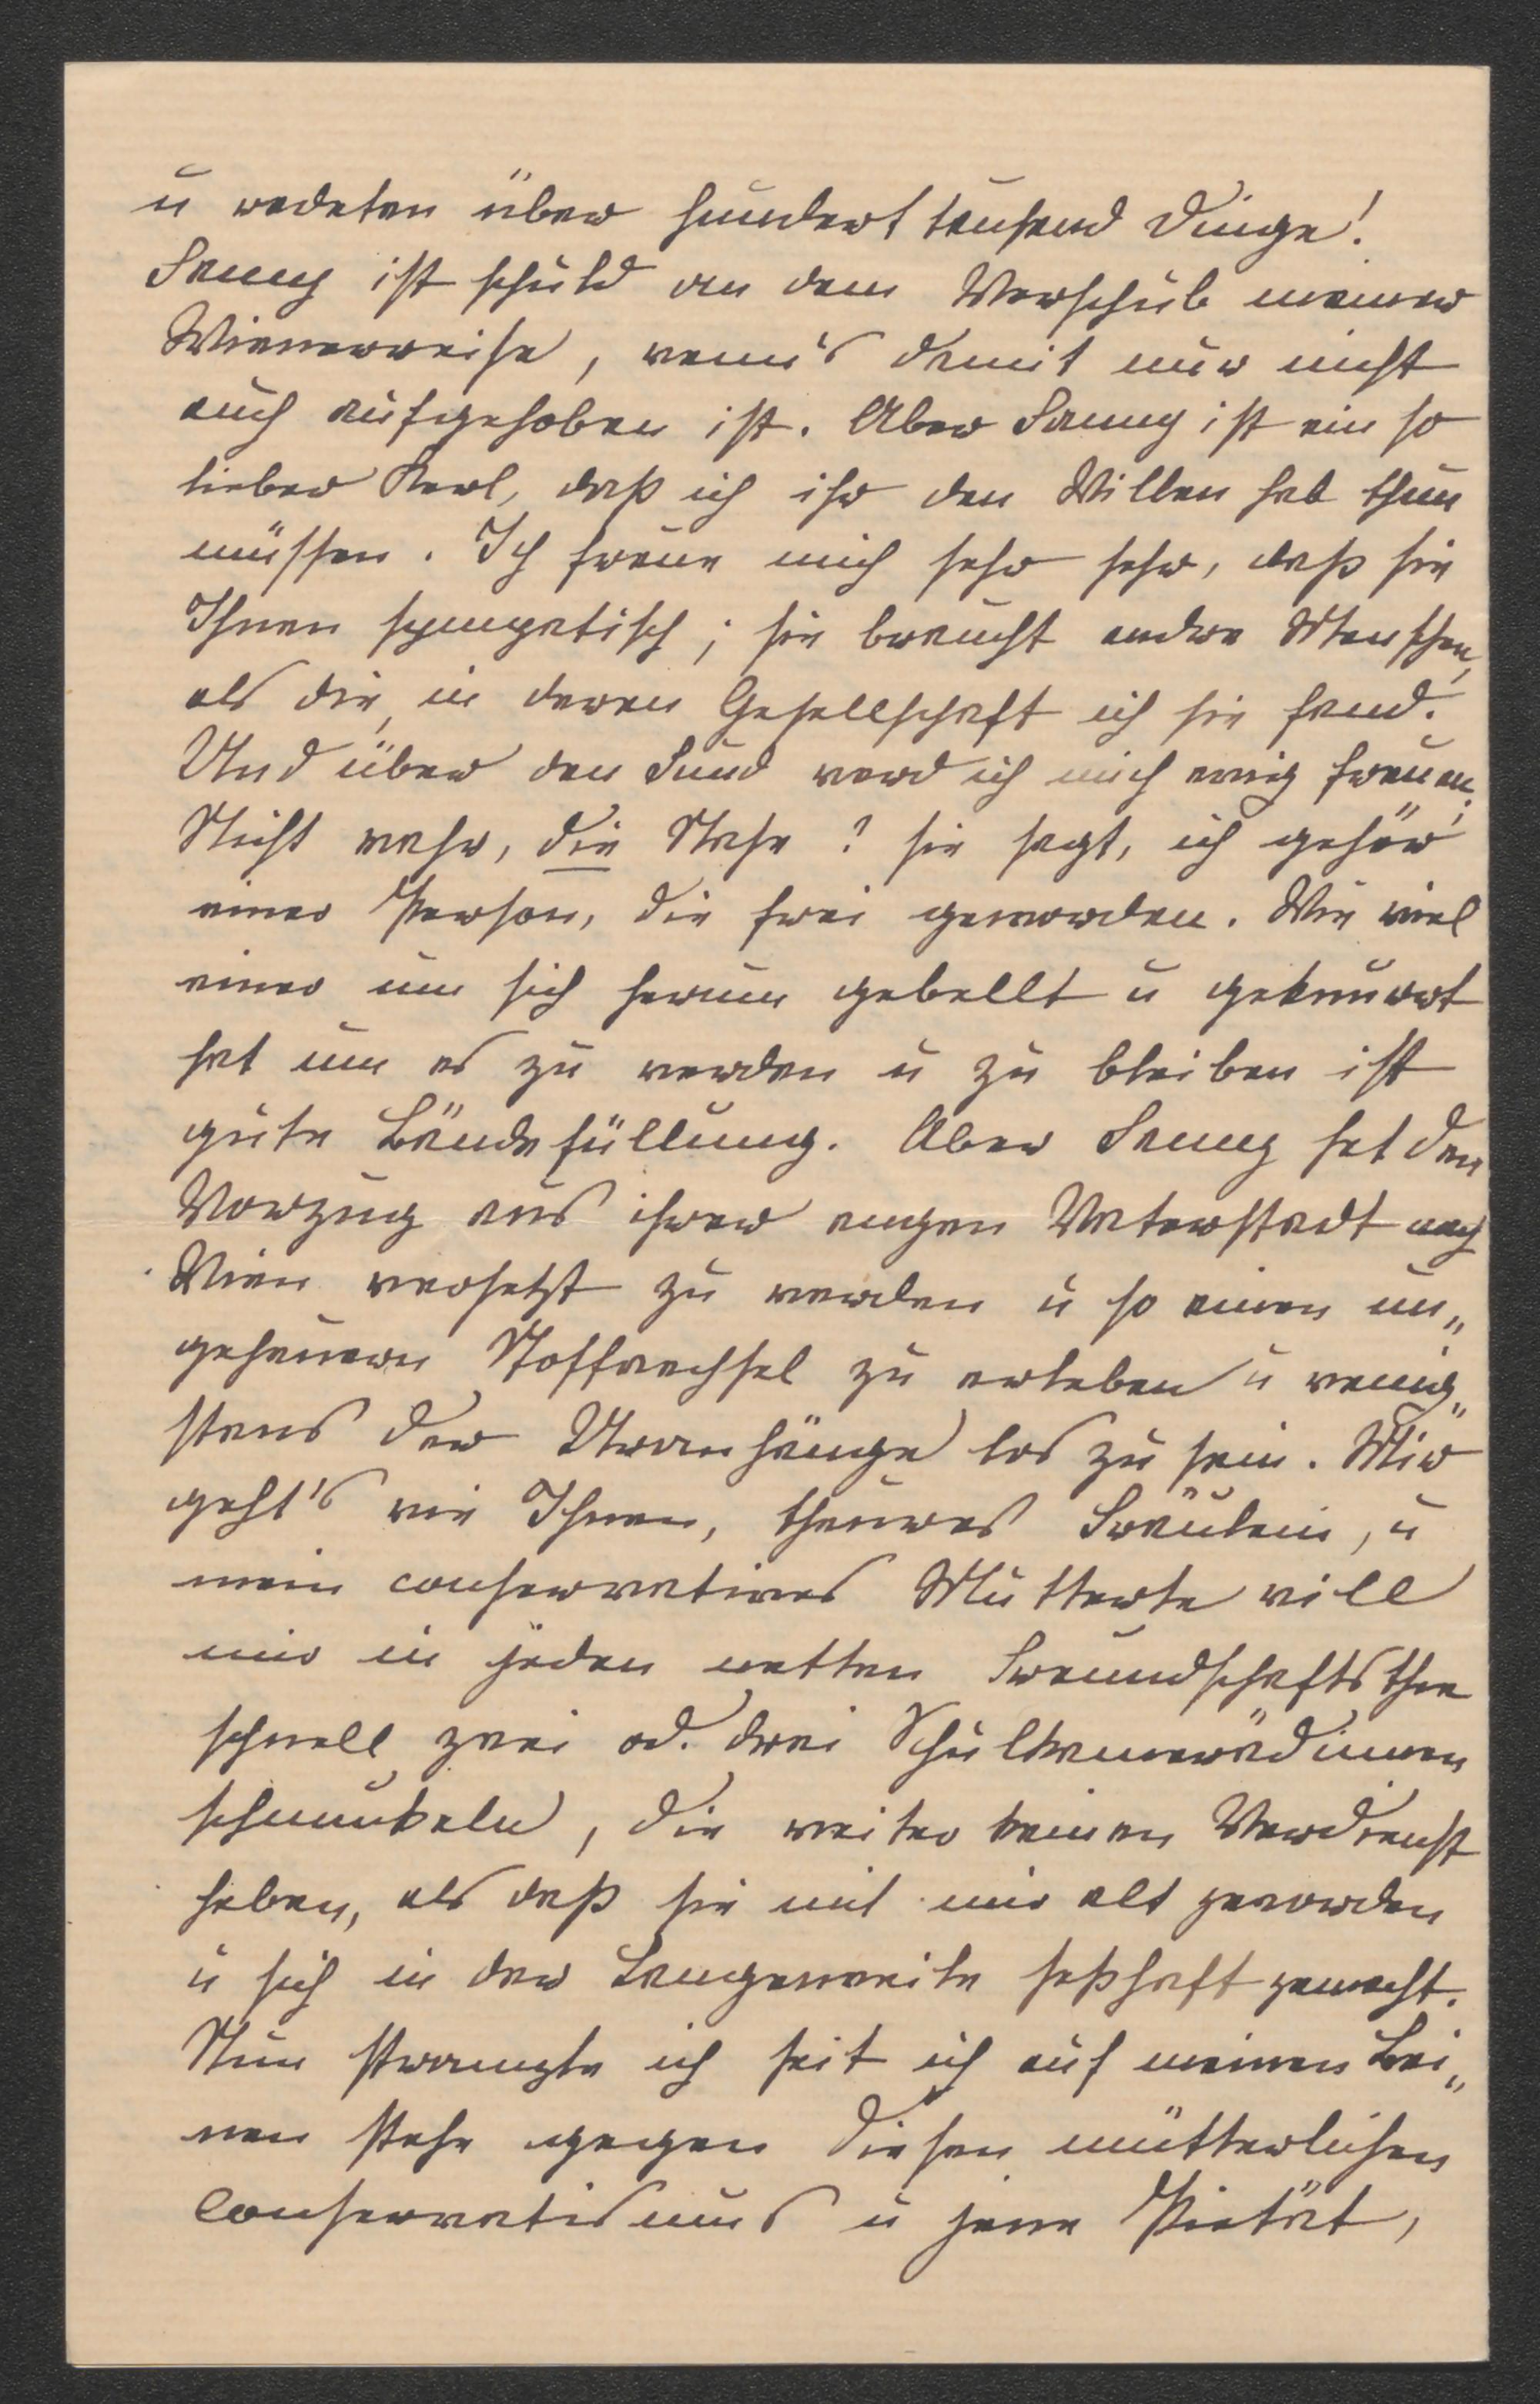 u redeten über hundert tausend Dinge!
Fanny ist schuld an dem Verschub meiner
Wienerreise, wenn's damit nur nicht
auch aufgehoben ist. Aber Fanny ist ein so
lieber Kerl, daß ich ihr den Willen hab thun
müssen. Ich freue mich sehr sehr, daß sie
Ihnen sympatisch; sie braucht andre Menschen,
als die, in deren Gesellschaft ich sie fand.
Und über den Fund werd ich mich ewig freuen.
Nicht wahr, die Nase? sie sagt, ich gehör'
einer Person, die frei geworden. Wie viel
einer um sich herum gebellt u geknurrt
hat um es zu werden u zu bleiben ist
gute Bändefüllung. Aber Fanny hat den
Vorzug aus ihrer engen Vaterstadt nach
Wien versetzt zu werden u so einen un„
geheuern Stoffwechsel zu erleben u wenig„
stens der Uranhänge los zu sein. Mir
geht's wie Ihnen, theures Fräulein, u
mein conservatives Mutterle will
mir in jeden netten Freundschaftsthee
schnell zwei od. drei Schulkamerädinnen
schmukeln, die weiter keinen Verdienst
haben, als daß sie mit mir alt geworden
u sich in der Langenweile seßhaft gemacht.
Nun strample ich seit ich auf meinen Bei„
nen stehe gegen diesen mütterlichen
Conservatismus u jene Pietät,